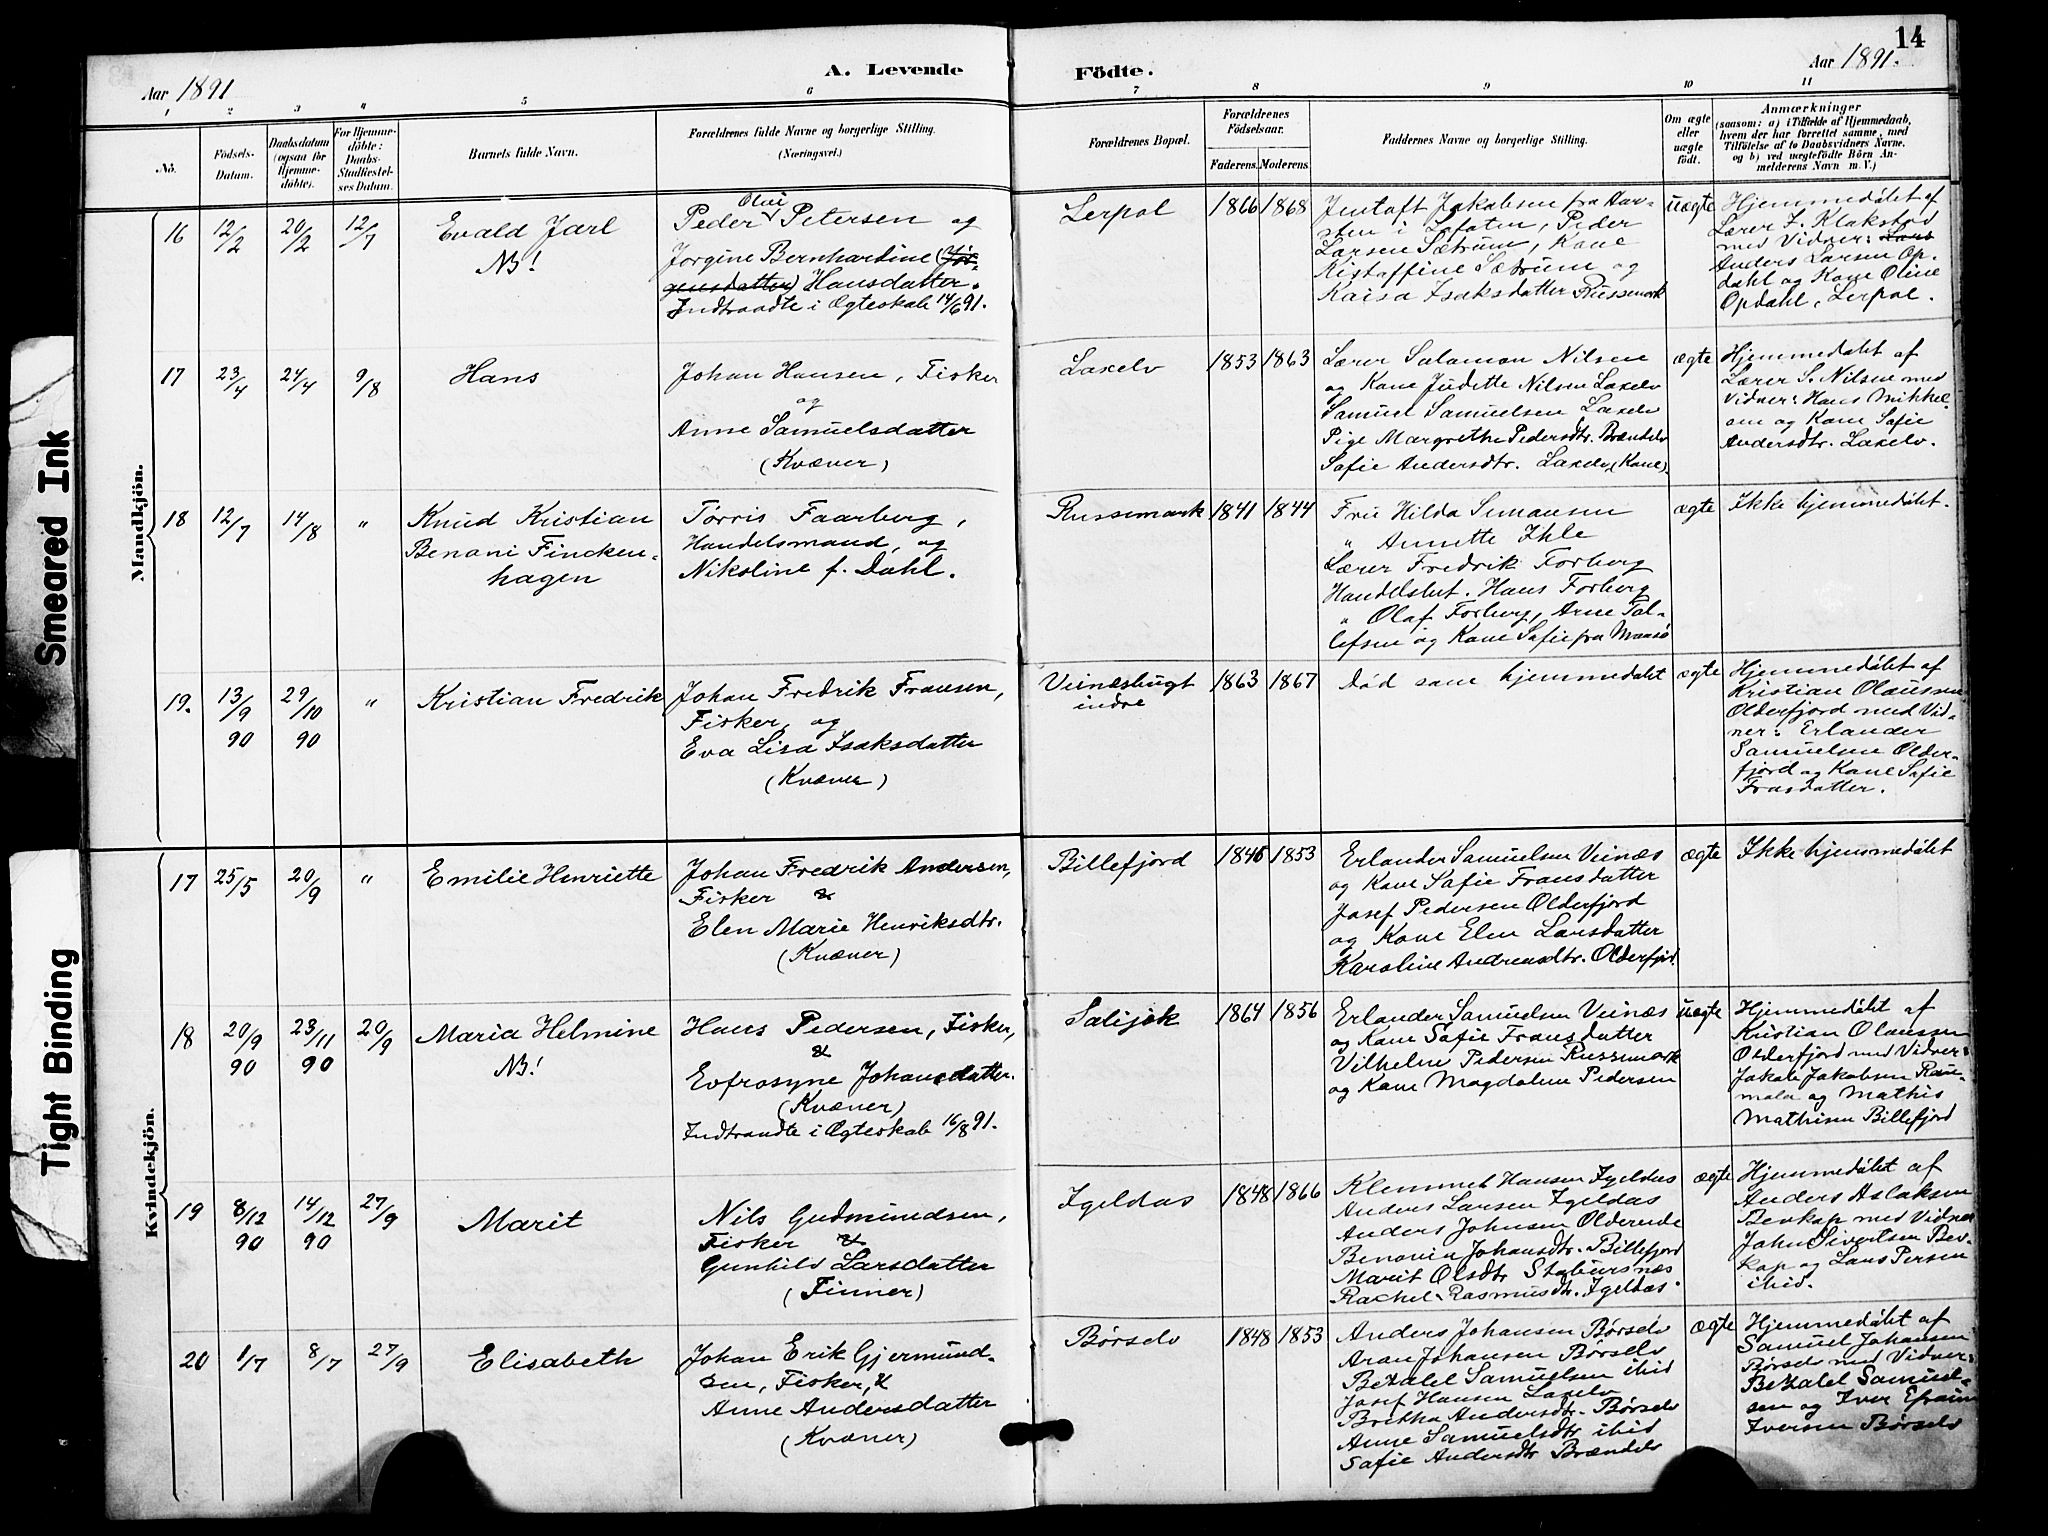 14
Aar 1891
A. Levende
Födte.
Aar 1891.
1 2 3 4 5 6 7 8 9 10 11
No.
Födsels-
Datum.
Daabsdatum
(ogsaa for
Hjemme-
döbte).
For Hjemme-
döbte:
Daabs-
Stadfæstel-
ses Datum.
Barnets fulde Navn.
Forældrenes fulde Navne og borgerlige Stilling.
(Næringsvei.)
Forældrenes Bopæl.
Forældrenes
Födselsaar.
Faderens. Moderens.
Faddernes Navne og borgerlige Stilling.
Om ægte
eller
uægte
födt.
Anmærkninger
(saasom: a) i Tilfælde af Hjemmedaab,
hvem der har forrettet samme, med
Tilföielse af to Daabsvidners Navne,
og b) ved uægtefödte Börn An-
melderens Navn m. V.)
Mandkjön.
16 12/2 20/2 12/7
Evald Jarl
NB!
Olai
Peder Petersen og
Jorgine Bernhardine (Jör-
gensdatter) Hansdatter.
Indtraadte i Ægteskab 14/6 91.
Lerpol
1866 1868
Jakobsen fra
i Lofoten, Peder
Larsen Sætrum, Kone
Kistaffine Sætrum og
Kaisa Isaksdatter Russemark
uægte
Hjemmedøbt af
Lærer J. Klakstad
med Vidner: Lars
Anders Larsen Op-
dahl og Kone Oline
Opdahl, Lerpol.
17 23/4 24/4 9/8
Hans
Johan Hansen, Fisker
og
Anne Samuelsdatter
(Kvæner)
Laxelv
1853 1863
Lærer Salamon Nilsen
og Kone Judette Nilsen Laxelv
Samuel Samuelsen Laxelv
Pige Margrethe Pedersdtr. Brændelv
Safie Andersdtr. Laxelv (Kone)
ægte
Hjemmedøbt af
Lærer S. Nilsen med
Vidner: Hans Mikkel-
sen og Kone Safie
Andersdtr. Laxelv.
18 12/7 14/8 "
Knud Kristian
Benoni Fincken-
hagen
Tørris Faarberg,
Handelsmand, og
Nikoline f. Dahl.
Russemark
1841 1844
Fru Hilda Simonsen
" Annette Ihle
Lærer Fredrik Forberg
Handelsbet. Hans Forberg
" Olaf Forberg, Arne Tol-
lefsen og Kone Safie fra Maasø
ægte
Ikke hjemmedøbt.
19. 13/9 90 29/10 90 "
Kristian Fredrik
Johan Fredrik Fransen,
Fisker, og
Eva Lisa Isaksdatter
(Kvæner)
Veinæsbugt
indre
1863 1867
Død som hjemmedøbt
ægte
Hjemmedøbt af
Kristian Olaussen
Olderfjord med Vid-
ner: Erlander
Samuelsen Older-
fjord og Kone Safie
Fransdatter.
Kvindekjön.
17 25/5 20/9 "
Emilie Henriette
Johan Fredrik Andersen,
Fisker &
Elen Marie Henriksdtr.
(Kvæner)
Billefjord
1846 1853
Erlander Samuelsen Veinæs
og Kone Safie Fransdatter
Josef Pedersen Olderfjord
og Kone Elen Larsdatter
Karoline Andreasdtr. Olderfjord.
ægte
Ikke hjemmedøbt
18 20/9 90 23/11 90 20/9
Maria Helmine
NB!
Hans Pedersen, Fisker,
&
Evfrosyne Johansdatter.
(Kvæner)
Indtraadte i Ægteskab 16/8 91.
Salijok
1864 1856
Erlander Samuelsen Veinæs
og Kone Safie Fransdatter
Vilhelm Pedersen Russemark
og Kone Magdalene Pedersen
uægte
Hjemmedøbt af
Kristian Olaussen
Olderfjord med Vidner:
Jakob Jakobsen
og Mathis
Mathisen Billefjord
19 8/12 90 14/12 90 27/9
Marit
Nils Gudmundsen,
Fisker &
Gunhild Larsdatter
(Finner)
Igeldas
1848 1866
Klemmet Hansen Igeldas
Anders Larsen Igeldas
Anders Johnsen Olderende
Benonie Johansdtr. Billefjord
Marit Olsdtr. Stabursnæs
Rachel Rasmusdtr. Igeldas.
ægte
Hjemmedøbt af
Anders Aslaksen
Bevkop med Vidner
John Sivertsen Bev-
kop og Lars Persen
ibid.
20 1/7 8/7 27/9
Elisabeth
Johan Erik Gjermund-
sen, Fisker, &
Anne Andersdatter
(Kvæner)
Børselv
1848 1853
Anders Johansen Børselv
Aron Johansen Børselv
Bezalel Samuelsen ibid
Josef Hansen Laxelv
Britha Andersdtr. Børselv
Anne Samuelsdtr ibid
Safie Andersdtr Brændelv
ægte
Hjemmedøbt af
Samuel Johansen
Børselv med Vidner:
Bezalel Samuel-
sen og Iver Efraim
Iversen Børselv
Smeared Ink
Tight Binding